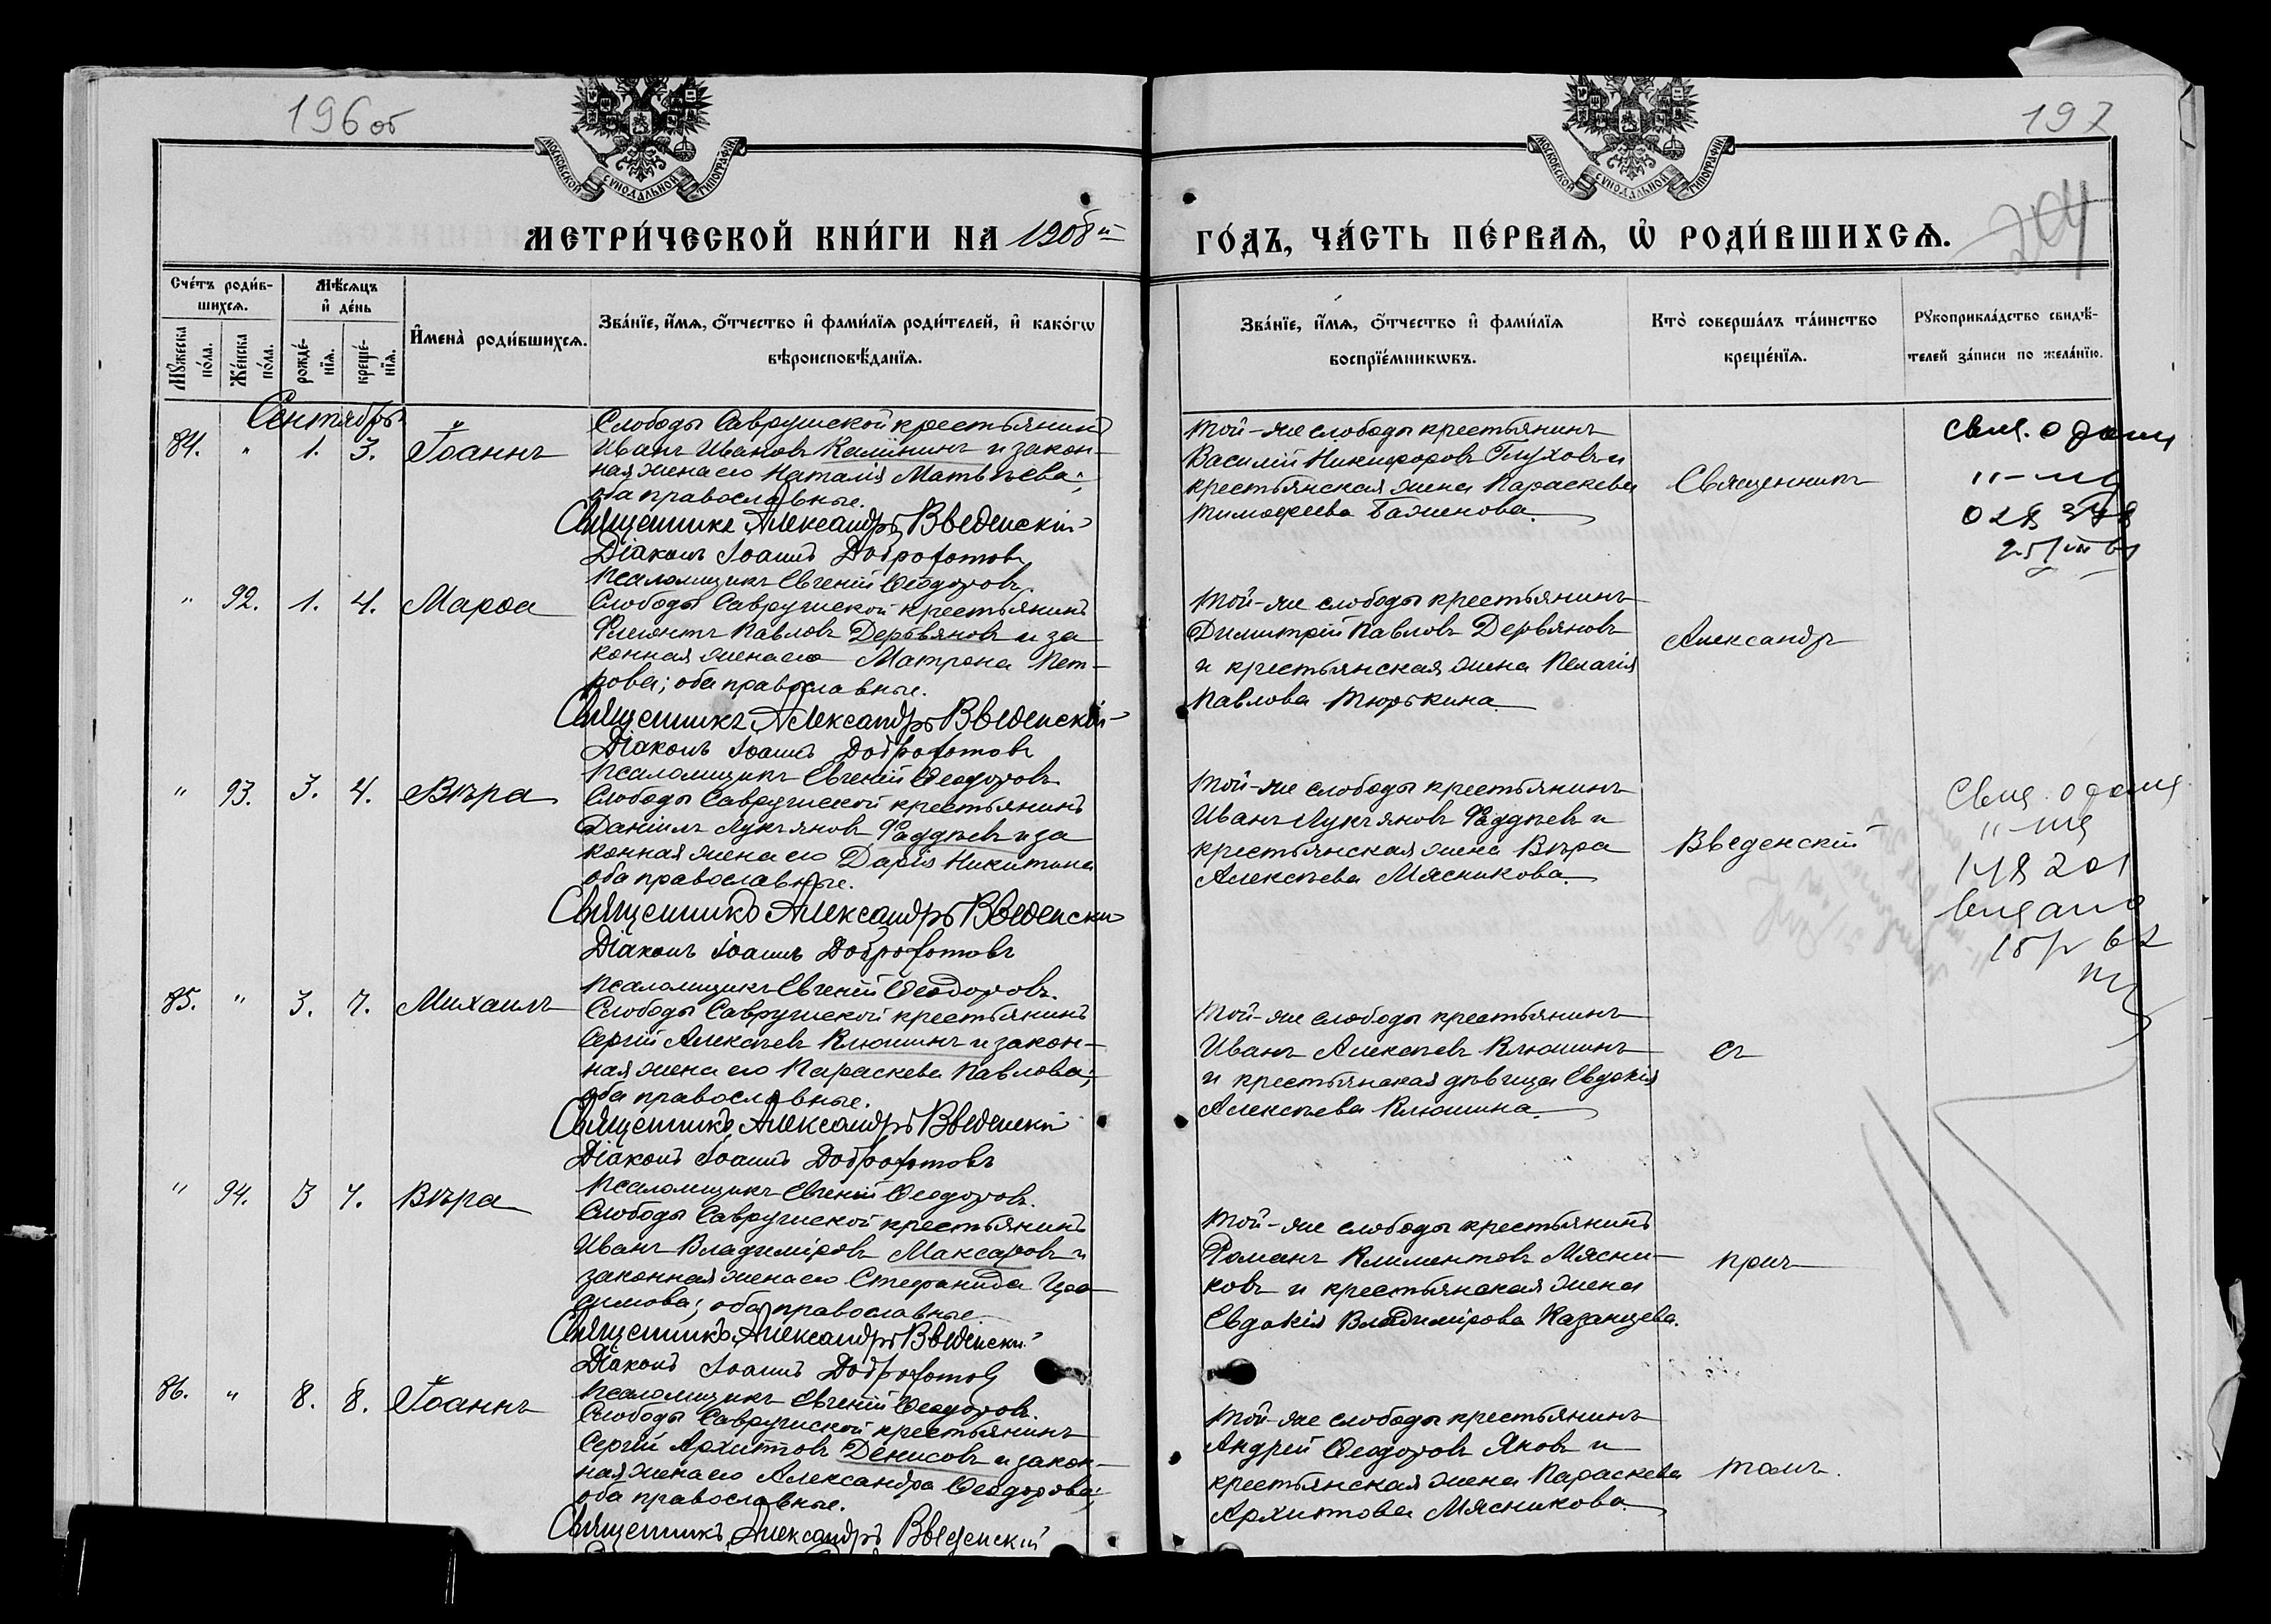 196 об
197
204
МОСКОВСКОЙ СѴНОДАЛЬНОЙ ТИПОГРАФІИ
МОСКОВСКОЙ СѴНОДАЛЬНОЙ ТИПОГРАФІИ
МЕТРИ́ЧЕСКОЙ КНИ́ГИ НА 1908й
ГО́ДЪ, ЧА́СТЬ ПЕ́РВАѦ, Ѡ҆ РОДИ́ВШИХСѦ.
Сче́тъ роди́в-
шихсѧ.
Мѣ́сѧцъ
и҆ де́нь
Мꙋ́жеска
по́ла.
Же́нска
по́ла.
рожде́-
нїѧ.
креще́-
нїѧ.
И҆мена̀ роди́вшихсѧ.
Зва́нїе, и҆́мѧ, ѻ҆́тчество и҆ фами́лїѧ роди́телей, и҆ како́гѡ
вѣроисповѣ́данїѧ.
Зва́нїе, и҆́мѧ, ѻ҆́тчество и҆ фами́лїѧ
воспрїе́мникѡвъ.
Кто̀ соверша́лъ та́инство
креще́нїѧ.
Рꙋкоприкла́дство свидѣ́-
телей за́писи по жела́нїю.
Сентябрь
84. " 1. 3. Іоаннъ
Слободы Саврушской крестьянинъ
Иванъ Ивановъ Калининъ и закон-
ная жена его Наталія Матвѣева;
оба православные.
Священникъ Александръ Введенскій
Діаконъ Іоаннъ Доброхотовъ
Псаломщикъ Евгеній Ѳеодоровъ.
Той-же слободы крестьянинъ
Василій Никифоровъ Глуховъ и
крестьянская жена Параскева
Тимофеева Баженова.
Священникъ
" 92. 1. 4. Марѳа
Слободы Саврушской крестьянинъ
Павловъ Дервяновъ и за
конная жена его Матрона Пет-
рова; оба православные.
Священникъ Александръ Введенскій
Діаконъ Іоаннъ Доброхотовъ
Псаломщикъ Евгеній Ѳеодоровъ
Той-же слободы крестьянинъ
Димитрій Павловъ Дервяновъ
и крестьянская жена Пелагія
Павлова Тюрькина.
Александръ
" 93. 3. 4. Вѣра
Слободы Саврушской крестьянинъ
Даніилъ Лукьяновъ Фаддѣевъ и за
конная жена его Дарія Никитина
оба православные.
Священникъ Александръ Введенскій
Діаконъ Іоаннъ Доброхотовъ
Псаломщикъ Евгеній Ѳеодоровъ.
Той-же слободы крестьянинъ
Иванъ Лукьяновъ Фаддѣевъ и
крестьянская жена Вѣра
Алексѣева Мясникова.
Введенскій
85. " 3. 7. Михаилъ
Слободы Саврушской крестьянинъ
Сергій Алексѣевъ Клюшинъ и закон-
ная жена его Параскева Павлова;
оба православные.
Священникъ Александръ Введенскій
Діаконъ Іоаннъ Доброхотовъ
Псаломщикъ Евгеній Ѳеодоровъ.
Той-же слободы крестьянинъ
Иванъ Алексѣевъ Клюшинъ
и крестьянская дѣвица Евдокія
Алексѣева Клюшина.
съ
" 94. 3 7. Вѣра
Слободы Саврушской крестьянинъ
Иванъ Владиміровъ Максаровъ и
законная жена его Стефанида
оба православные.
Священникъ Александръ Введенскій
Діаконъ Іоаннъ Доброхотовъ
Псаломщикъ Евгеній Ѳеодоровъ.
Той-же слободы крестьянинъ
Романъ Климентовъ Мясни-
ковъ и крестьянская жена
Евдокія Владимірова Казанцева.
прич
86. " 8. 8. Іоаннъ
Слободы Саврушской крестьянинъ
Сергій Архиповъ Денисовъ и закон-
ная жена его Александра Ѳеодорова;
оба православные.
Священникъ Александръ Введенскій
Той-же слободы крестьянинъ
Андрей Ѳеодоровъ Яковъ и
крестьянская жена Параскева
Архипова Мясникова.
томъ.